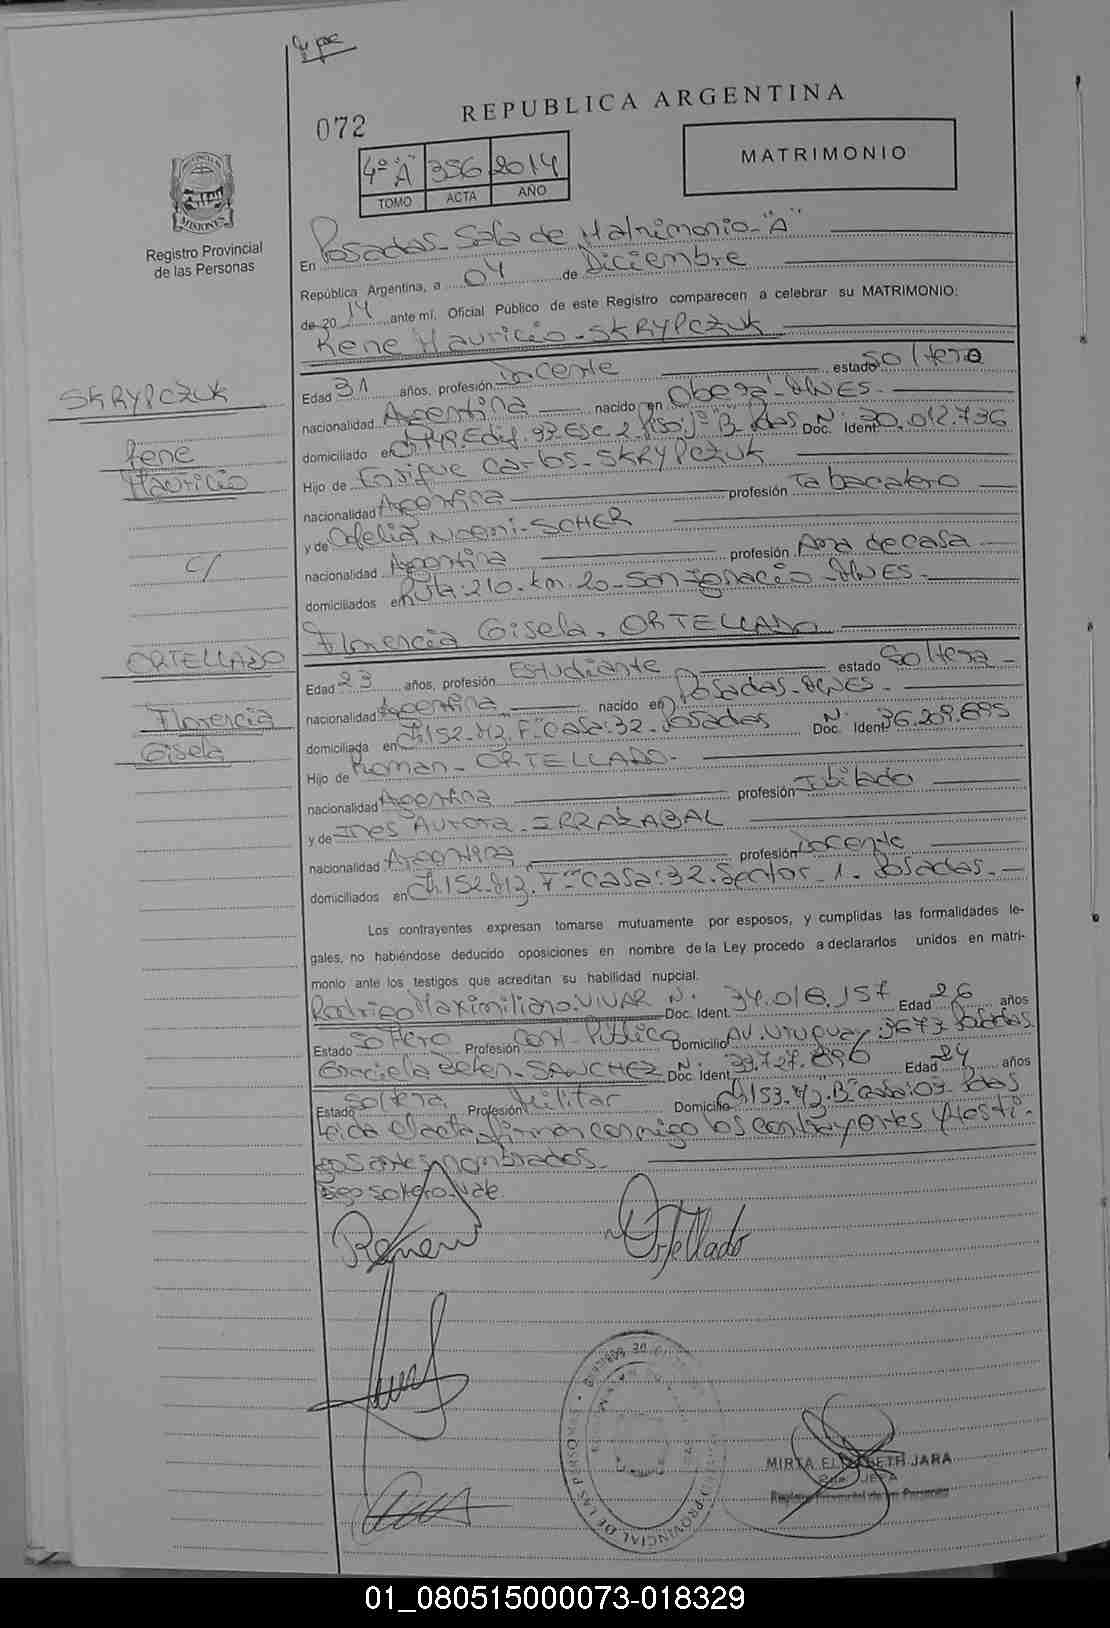 072
REPUBLICA ARGENTINA
4º "A" 356 2014
TOMO ACTA AÑO
MATRIMONIO
MISIONES
Registro Provincial
de las Personas
En Posadas - Sala de Matrimonio - "A"
República Argentina, a 04 de Diciembre
de 20 14 ante mí, Oficial Público de este Registro comparecen a celebrar su MATRIMONIO:
Rene Mauricio - SKRYPCZUK
SKRYPCZUK
Rene
Mauricio
C/
ORTELLADO
Florencia
Gisela
Edad 31 años, profesión Docente estado Soltero
nacionalidad Argentina nacido en Obera - MNES -
domiciliado en Edif. 93 Esc 2 Piso "B" Pdas Doc. Ident. Nº 30.012.736
Hijo de Enrique Carlos - SKRYPCZUK
nacionalidad Argentina profesión Tabacalero
y de Ofelia Noemi - SCHER
nacionalidad Argentina profesión Ama de casa
domiciliados en Ruta 210 - km. 20 - San Ignacio - MNES -
Florencia Gisela - ORTELLADO
Edad 23 años, profesión Estudiante estado Soltera -
nacionalidad Argentina nacido en Posadas - MNES -
domiciliada en Ch 152 - Mz. F - Casa: 32 - Posadas Doc. Ident. Nº 36.209.695
Hijo de Roman - ORTELLADO -
nacionalidad Argentina profesión Jubilado
y de Ines Aurora - IRRAZABAL
nacionalidad Argentina profesión Docente
domiciliados en Ch 152 - Mz. F - Casa: 32 - Sector - 1 - Posadas -
Los contrayentes expresan tomarse mutuamente por esposos, y cumplidas las formalidades le-
gales, no habiéndose deducido oposiciones en nombre de la Ley procedo a declararlos unidos en matri-
monio ante los testigos que acreditan su habilidad nupcial.
Rodrigo Maximiliano - VIVAR Doc. Ident. Nº 34.016.157 Edad 26 años
Estado Soltero Profesión Cont. Público Domicilio AV. Uruguay 3673 Posadas
Graciela Belen - SANCHEZ Doc. Ident. Nº 39.727.896 Edad 24 años
Estado Soltera Profesión Militar Domicilio Ch 153 - Mz. B - Casa: 03 - Pdas
Leida el acta firman conmigo los contrayentes y testi-
gos antes nombrados -
Soltero - Vale
Ortellado
REGISTRO PROVINCIAL DE LAS PERSONAS
MIRTA ELIZABETH JARA
JEFA
Registro Provincial de las Personas
01_080515000073-018329